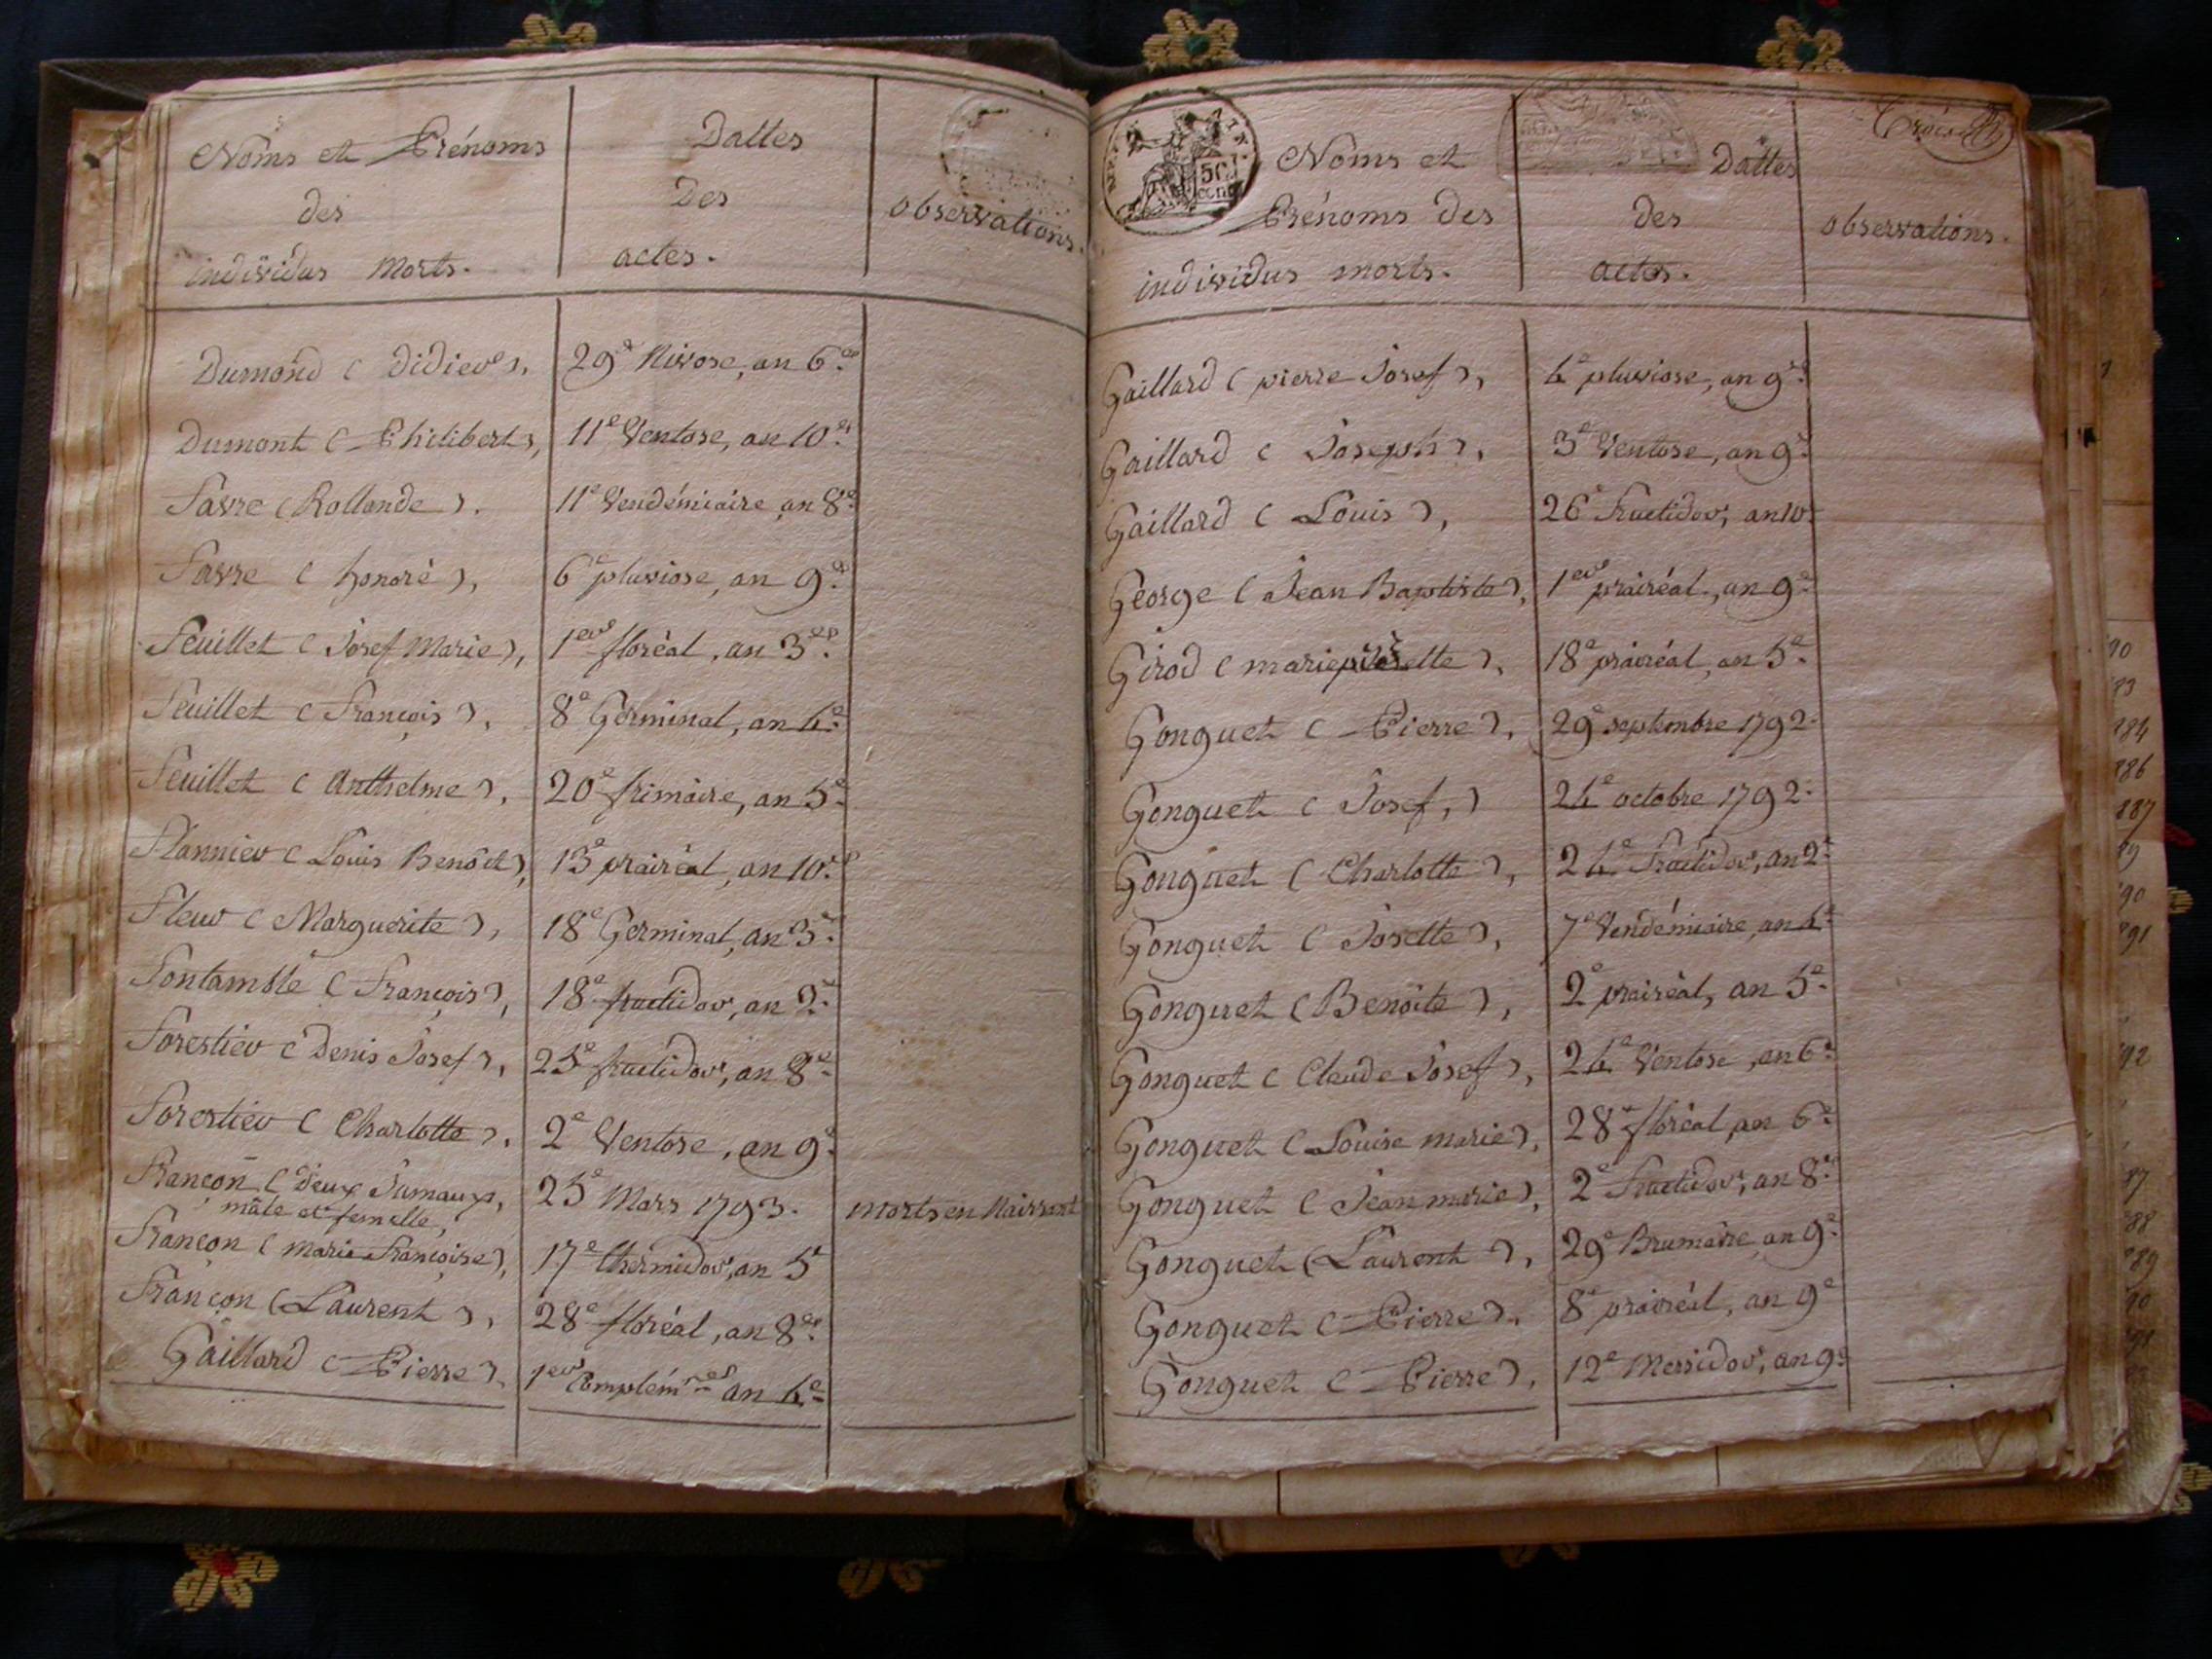 Noms et Prénoms
des
individus morts.
Dattes
Des
actes.
observations.
Dumond ( Didier ),
29e Nivose, an 6.e
Dumont ( Philibert ),
11e Ventose, an 10.e
Favre ( Rollande ).
11e Vendémiaire an 8e
Favre ( honoré ),
6e pluviose, an 9.e
Feuillet ( Josef Marie ),
1er floréal, an 3.e
Feuillet ( François ),
8e Germinal, an 4.e
Feuillet ( Anthelme ),
20e frimaire, an 5.e
( Louis Benoît ),
13e prairéal, an 10.e
Fleur ( Marguerite ),
18e Germinal, an 3.e
( François ),
18e fructidor, an
Forestier ( Denis Josef ),
25e fructidor, an 8e
Forestier ( Charlotte ).
2e Ventose, an 9.e
Françon ( deux Jumaux,
mâle et femelle,
25e Mars 1793.
morts en Naissant
Françon ( marie Françoise ),
17e thérmidor, an 5
Françon ( Laurent ),
28e floréal, an 8.e
Gaillard ( Pierre ).
1er Complém.res an 4.e
50
CENT
Noms et
Prénoms des
individus morts.
Dattes
des
actes.
observations.
Gaillard ( pierre Josef ),
4e pluviose, an 9.e
Gaillard ( Joseph ),
3e Ventose, an 9.e
Gaillard ( Louis ),
26e Fructidor, an 10
George ( Jean Baptiste ),
1er prairéal, an 9.e
Girod ( marie ),
18e prairéal, an 5.e
Gonguet ( Pierre ),
29e septembre 1792.
Gonguet ( Josef, )
24e octobre 1792.
Gonguet ( Charlotte ),
24e Fructidor, an 2.e
Gonguet ( Josette ),
7e Vendémiaire, an 4.e
Gonguet ( Benoîte ),
2e prairéal, an 5.e
Gonguet ( Claude Josef ),
24e Ventose, an 6.e
Gonguet ( Louise marie ),
28e floréal, an 6.e
Gonguet ( Jean marie ),
2e Fructidor, an 8.e
Gonguet ( Laurent ),
29e Brumaire an 9.e
Gonguet ( Pierre ).
8e prairéal, an 9e
Gonguet ( Pierre ),
12e Messidor, an 9.e